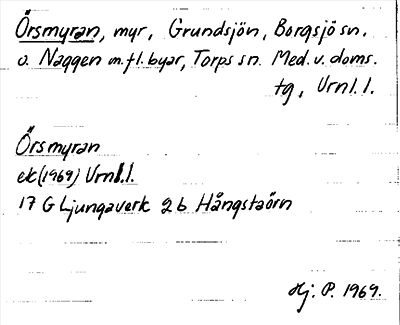 Örsmyran, myr, Grundsjön, Borgsjö sn.
o. Naggen m.fl. byar, Torps sn. Med. v. doms.
tg, Vrnl. l.
Örsmyran
ek (1969) Vrnl. l.
17 G Ljungaverk 2b Hångstaörn
Hj. P. 1969.